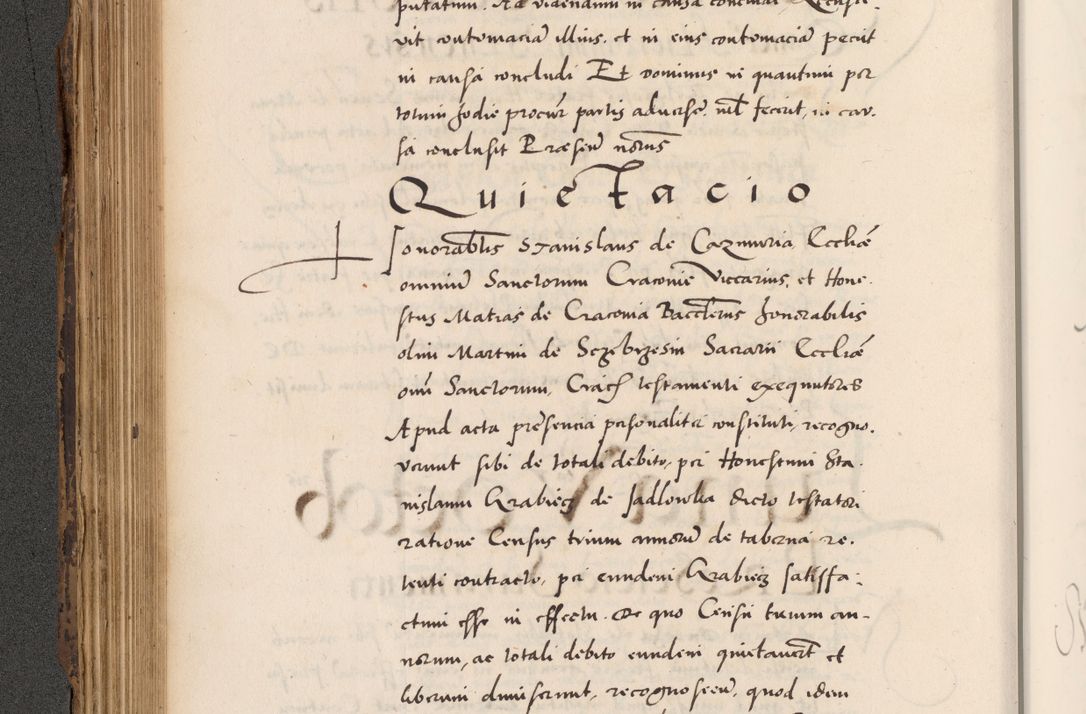 putatum. Ad videndum in causa concludi,
vit contumaciã illius. et in eius contumaciã petiit
in causa concludi Et dominus in quantum per
totum hodie procur̃ partis aduerse. nil fecerit, in cau.
sa conclusit Præsen̄ notus
QuieTacio
honorabĩlis Stanislaus de Cazimiria, Eccliæ
omniũ Sanctorum Cracoviẽ Viccarius, et Hone.
stus Matias de Cracovia Bacc̃lerus honorabilis
olim Martini de Sczebrzesin Sacrarii Eccliæ
oim̃ Sanctorum, Crac̃ testamenti exequutores
Apud acta presencia personaliter constituti, recogno.
verunt sibi de totali debito, per Honestum Sta.
nislaum Grabiecz de Jadlowka dicto testatori
ratione Census trium annorũ de taberna re.
tenti contracto, per eundem Grabiecz satisfa.
ctum esse in effectu. De quo Censu trium an-
norum, ac totali debito eundem quietauer̃t et
liberum dimiserunt, recognoscen̄, quod idem